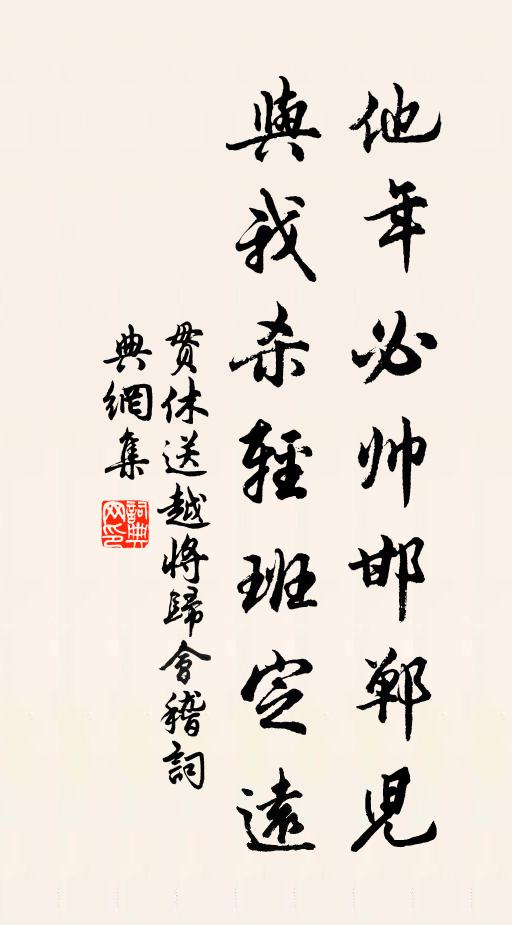 他年必帅邯鄲児
與我杀輕班定遠
贯休送越將歸會稽詞
典網集
詞典网印